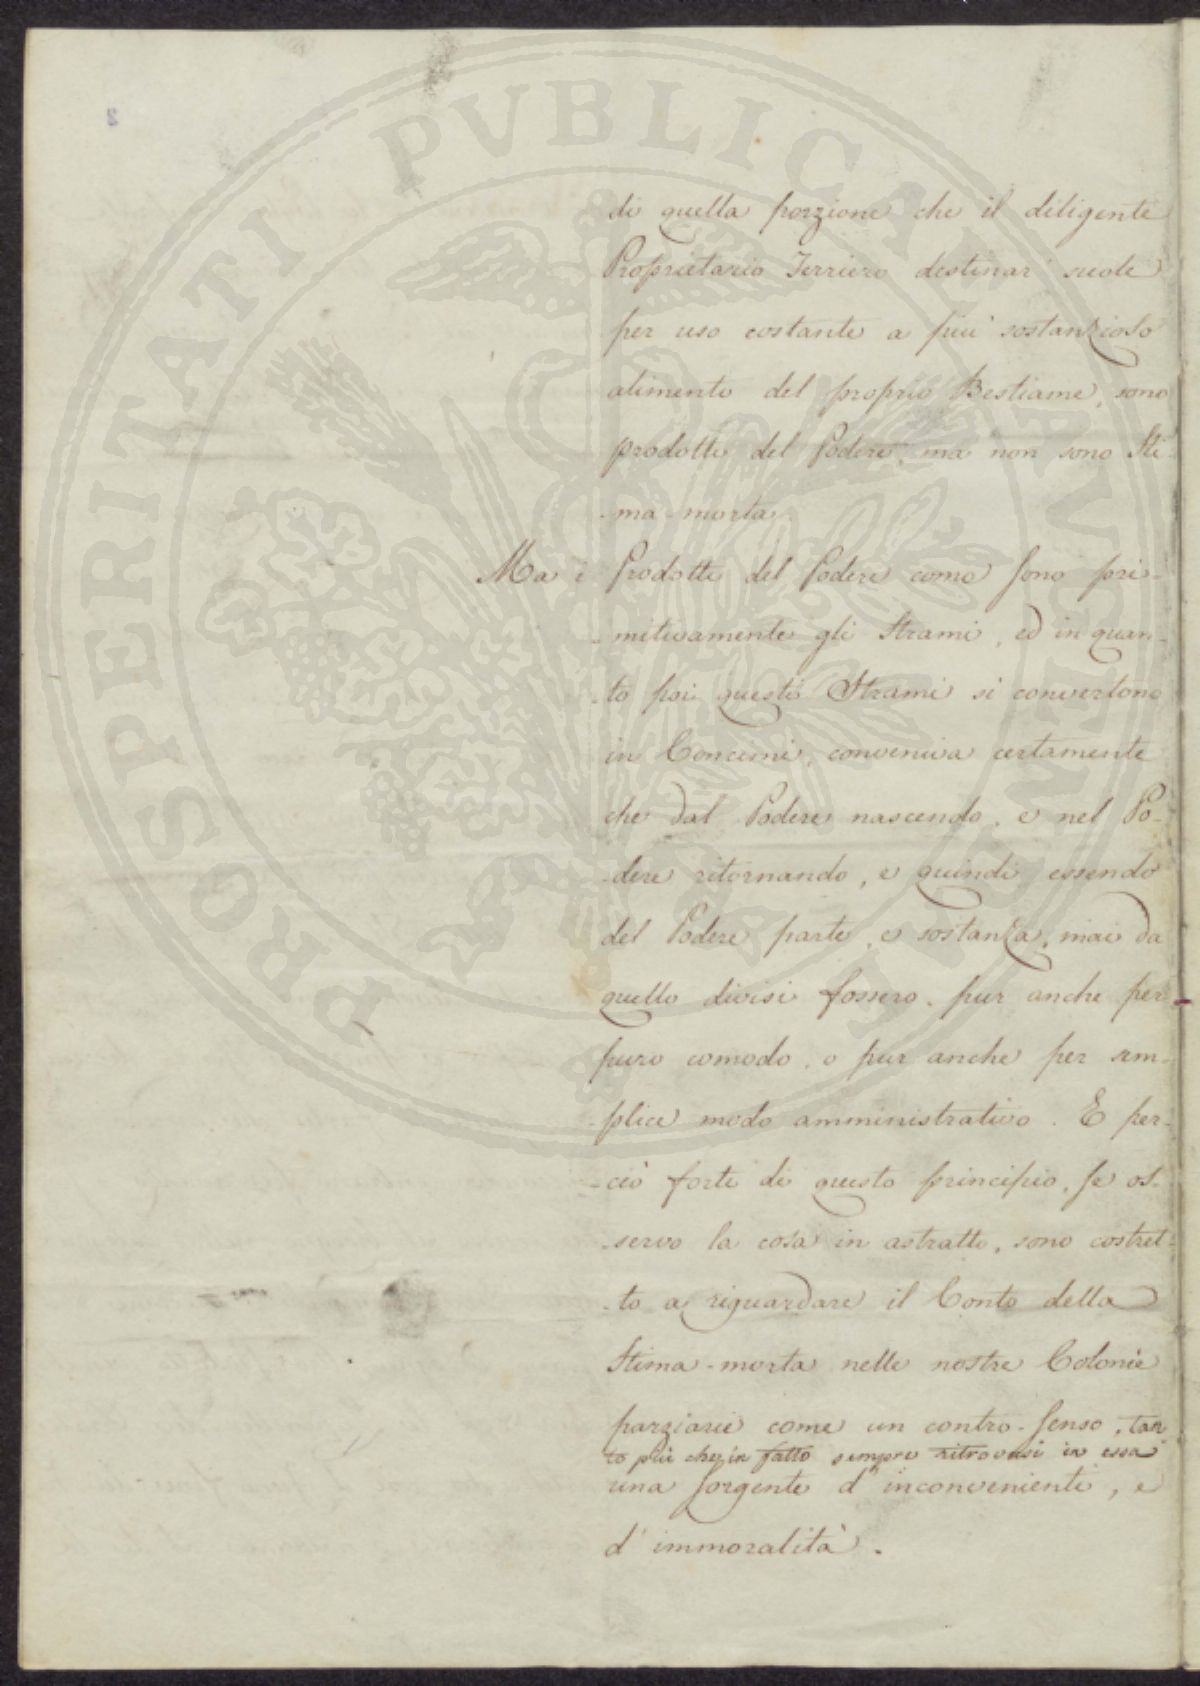 PROSPERITATI PVBLICAE AVGENDAE
2
di quella porzione che il diligente
Proprietario Terriero destinar' suole
per uso costante a più sostanzioso
alimento del proprio Bestiame, sono
prodotti del Podere, ma non sono Sti-
-ma-morta.
Ma i Prodotti del Podere come sono pri-
-mitivamente gli Strami, ed in quan-
-to poi questi Strami si convertono
in Concimi, conveniva certamente
che dal Podere nascendo, e nel Po-
-dere ritornando, e quindi essendo
del Podere parte, e sostanza, mai da
quello divisi fossero, pur anche per
puro comodo, o pur anche per sem-
-plice modo amministrativo. E per-
-ciò forte di questo principio, se os-
-servo la cosa in astratto, sono costret-
-to a riguardare il Conto della
Stima-morta nelle nostre Colonìe
parziarie come un contro-senso, tan
to più che in fatto sempre ritrovasi in essa
una sorgente d'inconvenienti, e
d'immoralità.